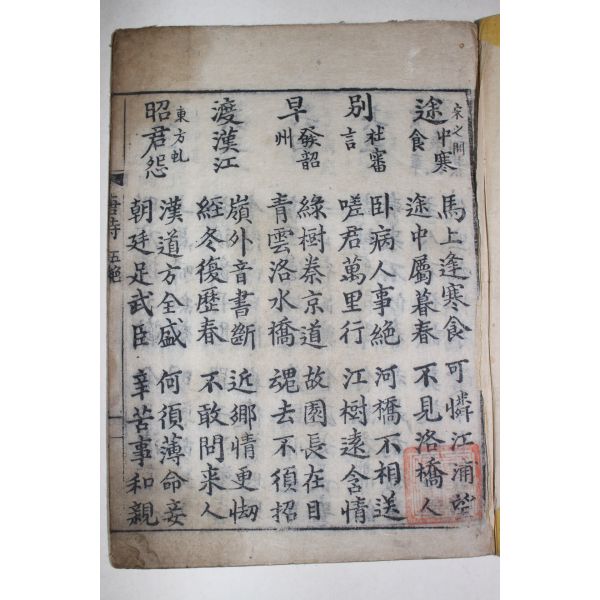 宋之問
途中寒食
馬上逢寒食 可憐江浦望
途中屬暮春 不見洛橋人
別杜審言
卧病人事絶 河橋不相送
嗟君萬里行 江樹遠含情
早發韶州
綠樹秦京道 故園長在目
青雲洛水橋 魂去不須招
渡漢江
嶺外音書斷 近鄉情更㤼
經冬復歷春 不敢問来人
東方虬
昭君怨
漢道方全盛 何須薄命妾
朝廷足武臣 辛苦事和親
唐詩 五絕